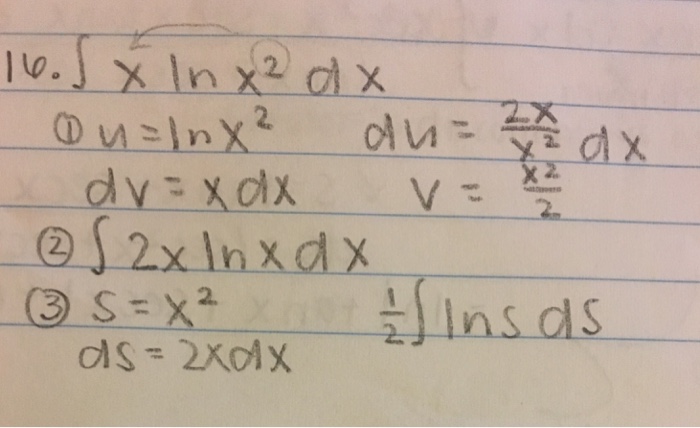 16. ∫ x ln x² dx
① u = ln x² du = 2x/x² dx
dv = x dx v = x²/2
② ∫ 2x ln x dx
③ s = x² 1/2 ∫ ln s ds
ds = 2x dx